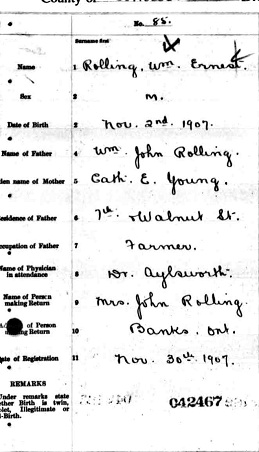 County of
No. 85.
Surname first
Name 1 Rolling, Wm. Ernest.
Sex 2 M.
Date of Birth 3 Nov. 2nd. 1907.
Name of Father 4 Wm. John Rolling.
den name of Mother 5 Cath. E. Young.
esidence of Father 6 7th. Walnut St.
ccupation of Father 7 Farmer.
Name of Physician
in attendance 8 Dr. Aylsworth.
Name of Person
making Return 9 Mrs. John Rolling.
of Person
making Return 10 Banks, Ont.
ate of Registration 11 Nov. 30th. 1907.
REMARKS
Under remarks state
ether Birth is twin,
plet, Illegitimate or
l-Birth.
042467